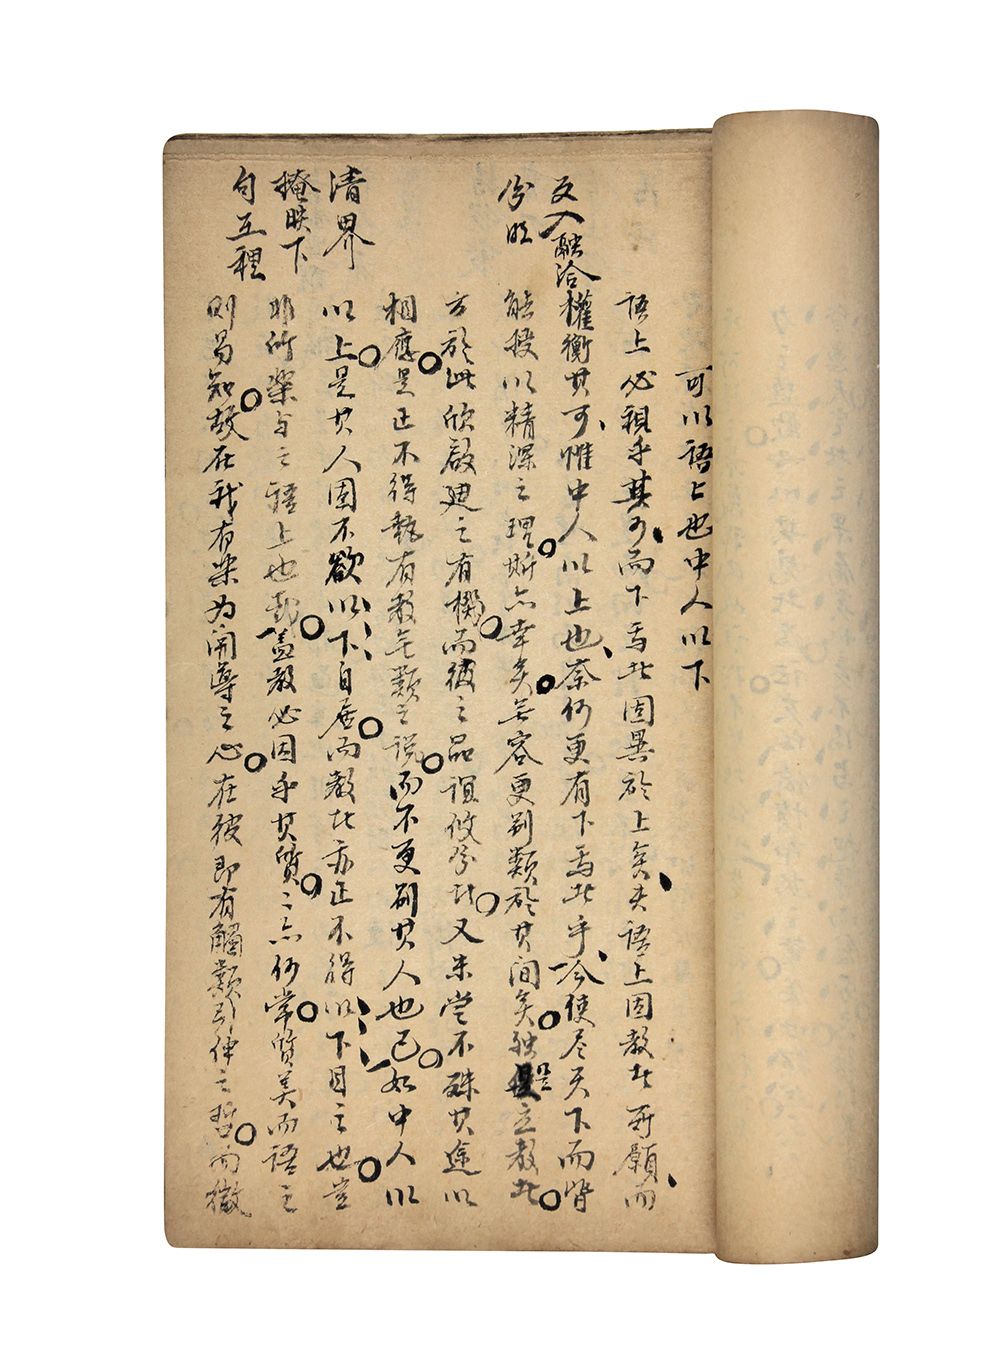 可以語上也中人以下
語上必視乎其可而下焉者固異於上矣夫語上固教者所願而
權衡其可惟中人以上也奈何更有下焉者乎今使尽天下而皆
能授以精深之理斯亦幸矣無容更别類於其間矣独是立教者
方於此欣啟迪之有機而彼之品誼攸分者又未尝不殊其途以
相應是正不得執有教无類之說而不更别其人也已如中人以
以上是其人固不欲以下自居而教者亦正不得以下目之也豈
非所樂与之語上也哉盖教必因乎其質質亦何常質美而語之
则易知故在我有樂为開導之心在彼即有觸類引伸之而徵
反入融洽
分明
清界
掩映下
句互裡